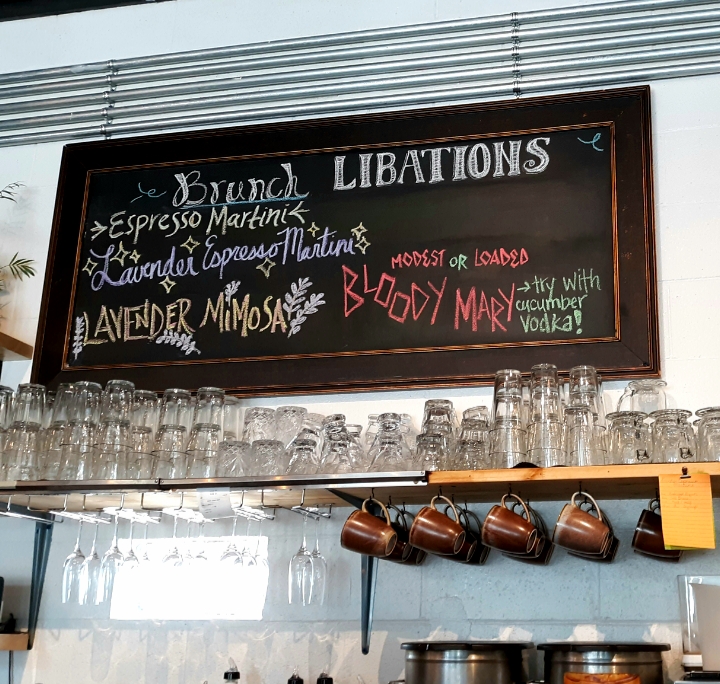 Brunch LIBATIONS
Espresso Martini
Lavender Espresso Martini
LAVENDER MiMOSA
MODEST OR LOADED
BLOODY MARY
→try with
cucumber
vodka!